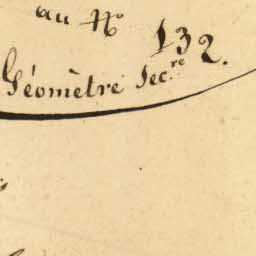 au N.º 132.
Géomètre Sec.re